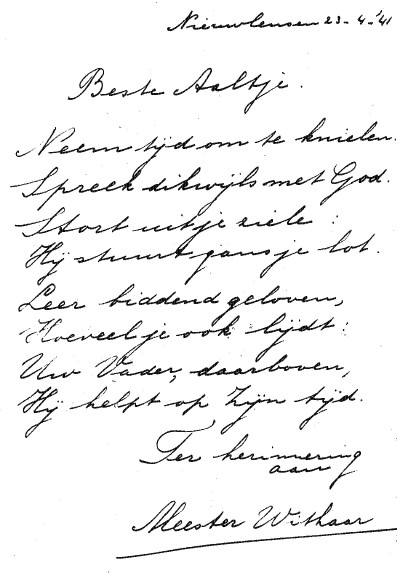 Nieuwleusen 23-4-'41
Beste Aaltje.
Neem tijd om te knielen.
Spreek dikwijls met God.
Stort uit je ziele :
Hij stuurt gans je lot.
Leer biddend geloven,
Hoeveel je ook lijdt:
Uw Vader, daarboven,
Hij helpt op Zijn tijd.
Ter herinnering
aan
Meester Withaar